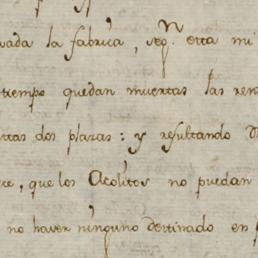 vada la fabrica, segn. esta mi
tiempo quedan muertas las ren
tas dos plazas: y resultando d
que los Acolitos no puedan
no haver ninguno destinado en